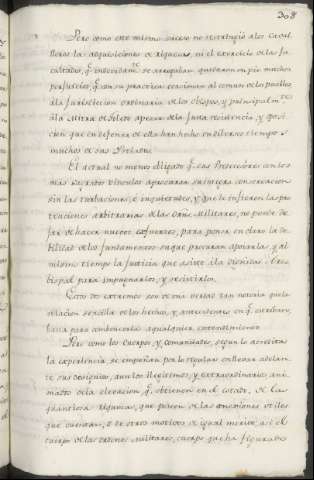 308
Pero como este mismo suceso no restringió a los Caval
leros las adquisiciones de riquezas, ni el exercicio de las fa
cultades, q.e indevidam.te se arrogaban quedaron en pie muchos
perjuicios, q.e con su practica ocasionan al comun de los pueblos
a la jurisdiccion ordinaria de los obispos, y principalm.te
a la Mitra de Toledo apesar de la justa resistencia, y oposi
cion que en defensa de ella han hecho en diversos tiempos
muchos de sus Prelados.
El actual no menos obligado q.e sus Predecesores con los
mas sagrados vinculos a procurar su integra conservacion
sin las turbaciones, e inquietudes, y que le infieren las pre
tenciones arbitrarias de las Orns Militares, no puede de
jar de hacer nuevos esfuerzos, para poner en claro la de
bilidad de los fundamentos en que procuran apoyarlas, y al
mismo tiempo la justicia que asiste a la Dignidad Arzo
bispal para impugnarlos, y resistirlos.
Estos dos extremos son de una verdad tan notoria que la
relacion sencilla de los hechos, y antecedentes en q.e estriban,
basta para combencerla a qualquiera entendimiento.
Pero como los Cuerpos, y comunidades, segun lo acredita
la experiencia, se empeñan por lo regular en llevar adelan
te sus designios, aun los ilegitimos, y extraordinarios ani
mados de la elevacion, q.e obtienen en el estado, de las
quantiosas riquezas, que poseen de las conexiones utiles
que cuentan, o de otros motivos de igual merito, asi el
cuerpo de las ordenes militares, cuerpo que ha figurado